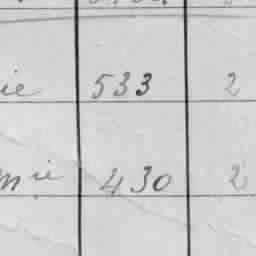 ie 533 2
m ie 430 2